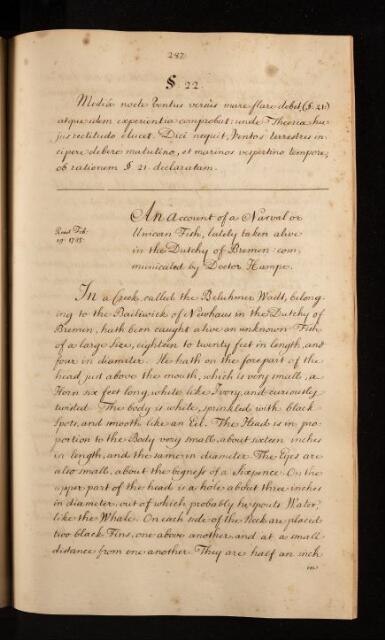 287
§ 22
Mediâ nocte Ventus versùs mare flare debet, (§. 21.)
atque idem experientia comprobat: unde Theoriæ hu
jus rectitudo elucet. Dici nequit, Ventos terrestres in
cipere debere matutino, et marinos vespertino tempore,
ob rationem § 21 declaratam.
An account of a Narval or
Read Feb.
Unicorn Fish, lately taken alive
in the Dutchy of Bremen com
municated by Doctor Hampe.
In a Creek, called the Beluhmer Wadt, belong-
ing to the Bailiwick of Newhaus in the Dutchy of
Bremen, hath been caught alive an unknown Fish
of a large size, eighteen to twenty feet in length, and
four in diameter. He hath on the forepart of the
head just above the mouth, which is very small, a
Horn six feet long, white like Ivory, and curiously
twisted The body is white, sprinkled with black
spots, and smooth like an Eel. The Head is in pro
portion to the Body very small, about sixteen inches
in length, and the same in diameter The Eyes are
also small, about the bigness of a Sixpence. On the
upper part of the head is a hole about three inches
in diameter, out of which probably he spouts Water,
like the Whale. On each side of the Neck are placed
two black Fins, one above another, and at a small
distance from one another They are half an inch
in